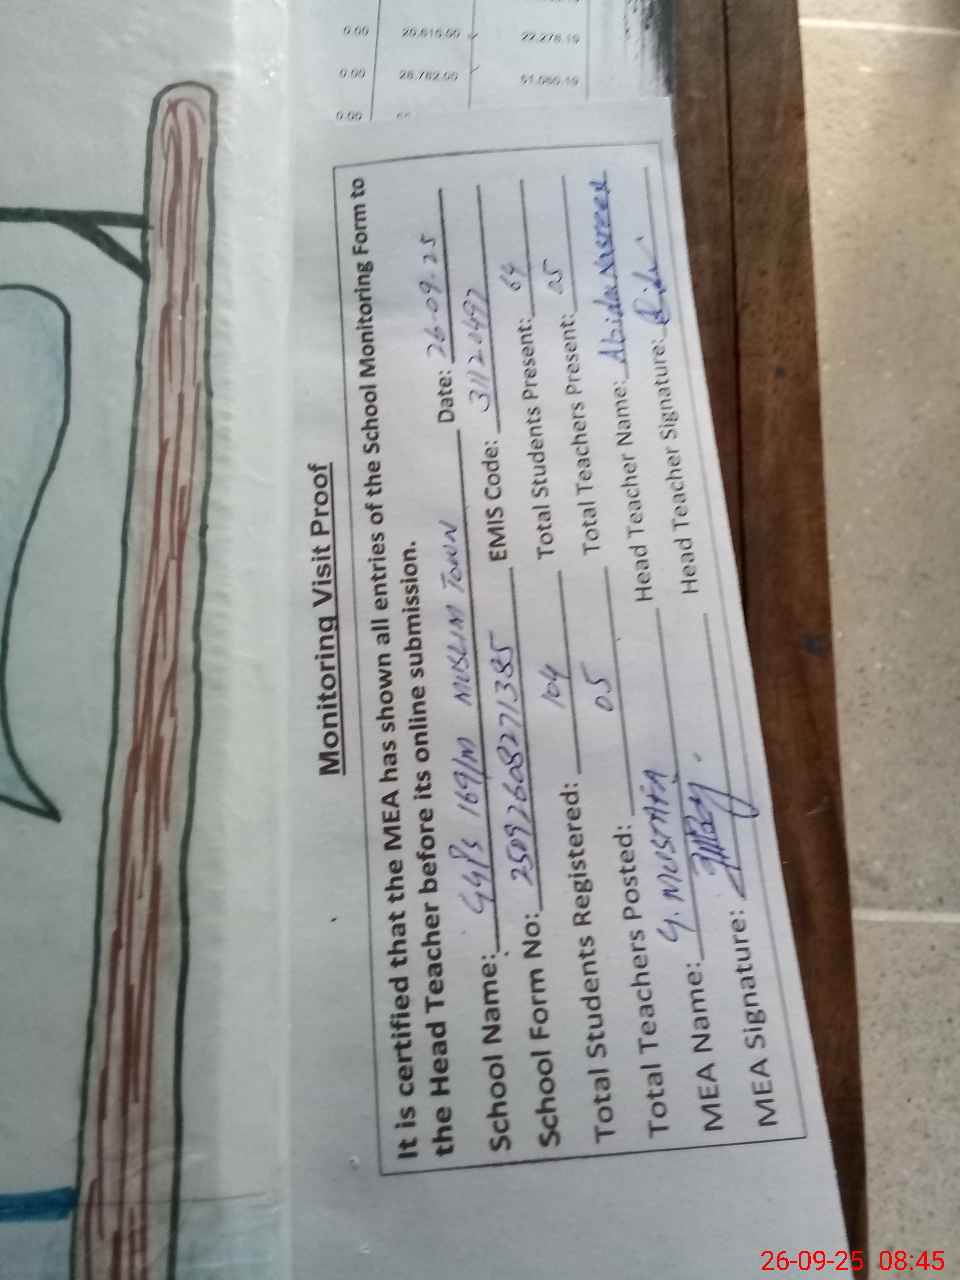 0.00 20,616.00 22,278.19
0.00 28,782.00 51,060.19
0.00
Monitoring Visit Proof
It is certified that the MEA has shown all entries of the School Monitoring Form to
the Head Teacher before its online submission.
School Name: GGPS 169/m MUSLIM TOWN Date: 26-09-25
School Form No: 25092608271385 EMIS Code: 31120497
Total Students Registered: 104 Total Students Present: 64
Total Teachers Posted: 05 Total Teachers Present: 05
MEA Name: G. MUSTAFA Head Teacher Name: Abida
MEA Signature: Head Teacher Signature:
26-09-25 08:45